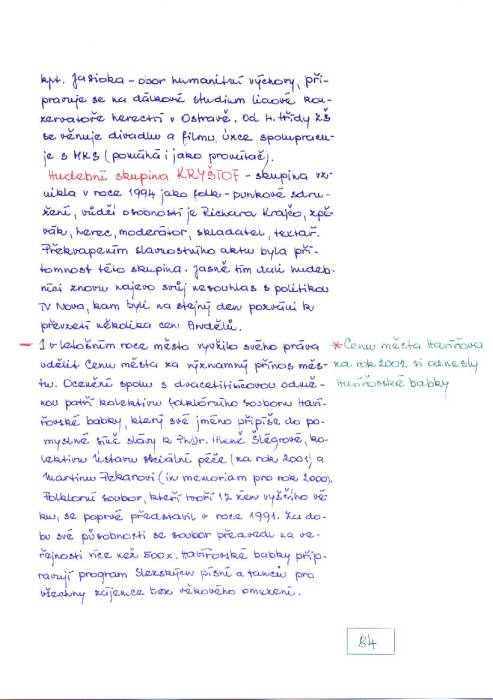 kpt. Jasioka – obor humanitní výchovy, při-
pravuje se na dálkové studium lidové kon-
zervatoře herectví v Ostravě. Od 4. třídy ZŠ
se věnuje divadlu a filmu, úzce spolupracu-
je s MKS (pomáhá i jako promítač).
Hudební skupina KRYŠTOF – skupina vz-
nikla v roce 1994 jako folk-punkové sdru-
žení, vůdčí osobností je Richard Krajčo, zpě-
vák, herec, moderátor, skladatel, textař.
Překvapením slavnostního aktu byla pří-
tomnost této skupiny. Jasně tím dali hudeb-
níci znovu najevo svůj nesouhlas s politikou
TV Nova, kam byli na stejný den pozváni k
převzetí několika cen Andělů.
– I v letošním roce město využilo svého práva
udělit Cenu města za významný přínos měs-
tu. Ocenění spolu s dvacetitisícovou odmě-
nou patří kolektivu folklórního souboru Haví-
řovské babky, který své jméno připíše do po-
myslné síně slávy k PhDr. Aleně Šlégrové, ko-
lektivu Ústavu sociální péče (za rok 2001) a
Martinu (in memoriam pro rok 2000).
Folklorní soubor, který tvoří 12 žen vyššího vě-
ku, se poprvé představil v roce 1991. Za do-
bu své působnosti se soubor předvedl na ve-
řejnosti více než 500x. Havířovské babky přip-
ravují program Slezských písní a tanců pro
všechny zájemce bez věkového omezení.
* Cenu města Havířova
za rok 2002 si odnesly
Havířovské babky
84